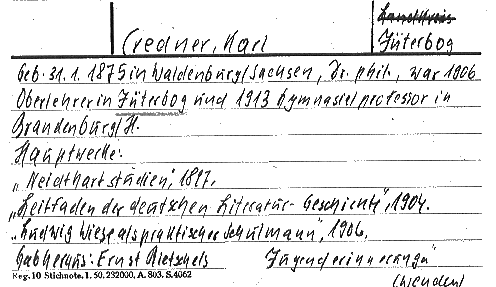 Landkreis
Credner, Karl
Jüterbog
Geb. 31. 1. 1875 in Waldenburg/Sachsen, Dr. phil., war 1906
Oberlehrer in Jüterbog und 1913 Gymnasialprofessor in
Brandenburg/H.
Hauptwerke:
„Neidhartstudien", 1897.
„Leitfaden der deutschen Literatur-Geschichte", 1904.
„Ludwig Wiese als praktischer Schulmann", 1906.
Ernst Rietschels Jugenderinnerungen"
Reg. 10 Stichnote. 1. 50. 232000. A. 803. S. 4062
(wenden)